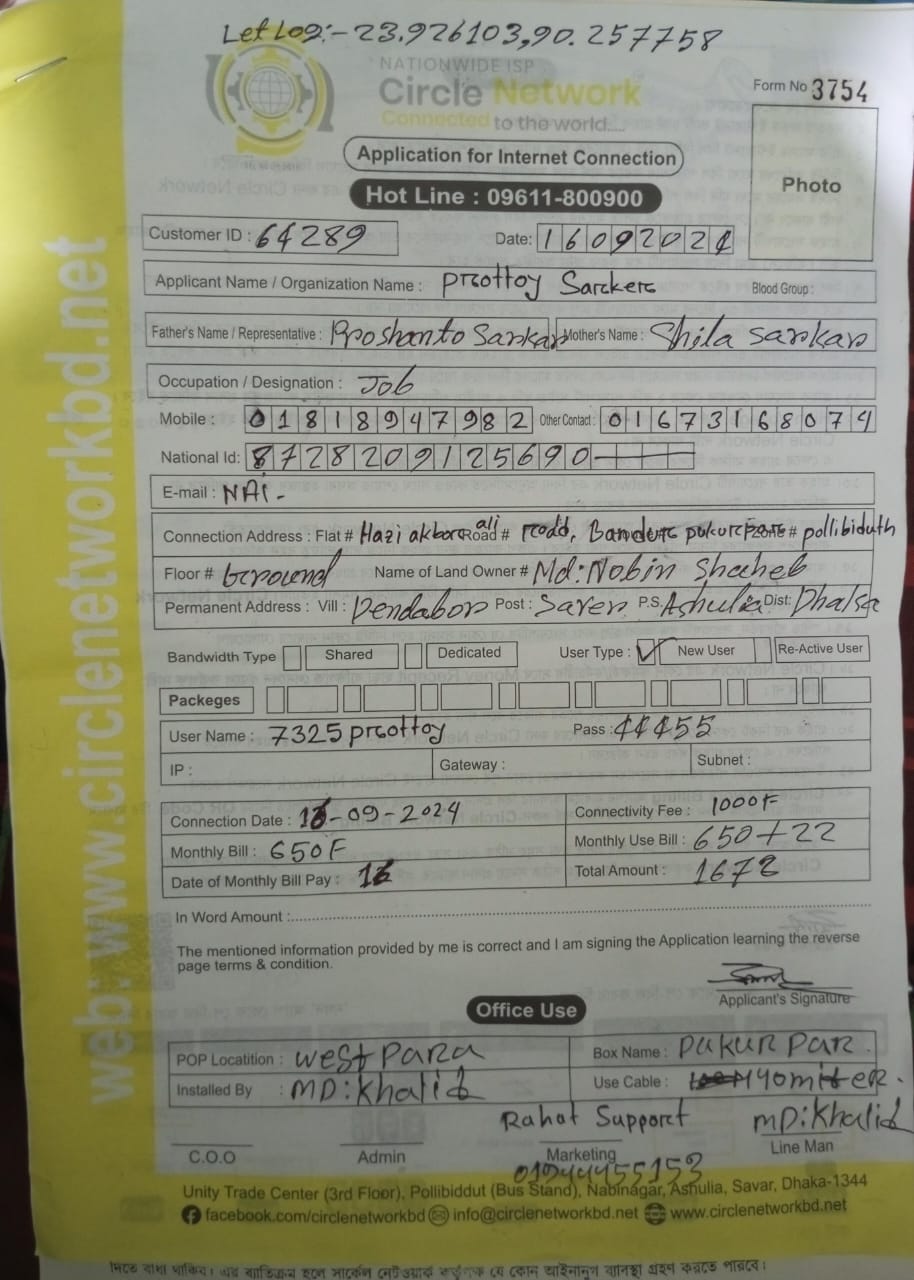 Let Log:- 23.926103,90.257758
NATIONWIDE ISP
Circle Network
Connected to the world.....
Form No 3754
Application for Internet Connection
Photo
Hot Line : 09611-800900
Customer ID : 64289 Date: 16092024
Applicant Name / Organization Name : Prottoy Sarker Blood Group :
Father's Name / Representative : Proshanto Sarkar Mother's Name : Shila Sarkar
Occupation / Designation : Job
Mobile : 01818947982 Other Contact : 01673168074
National Id: 8728209125690
E-mail : NAI -
Connection Address : Flat # Hazi akbor ali Road # road, Bandure pukurpare Zone # pollibiduth
Floor # Ground Name of Land Owner # Md: Nobin Shaheb
Permanent Address : Vill : Dendabor Post : Saver P.S Ashulia Dist: Dhaka
Bandwidth Type Shared Dedicated User Type : ✓ New User Re-Active User
Packeges
User Name : 7325prottoy Pass : 44455
IP : Gateway : Subnet :
Connection Date : 16-09-2024 Connectivity Fee : 1000F
Monthly Bill : 650F Monthly Use Bill : 650+22
Date of Monthly Bill Pay : 16 Total Amount : 1672
In Word Amount :
The mentioned information provided by me is correct and I am signing the Application learning the reverse
page terms & condition.
Applicant's Signature
Office Use
POP Locatition : West Para Box Name : PUKUR PAR.
Installed By : MD: Khalid Use Cable : 140miter.
Rahat Support MD: Khalid
C.O.O Admin Marketing Line Man
01944455153
Unity Trade Center (3rd Floor), Pollibiddut (Bus Stand), Nabinagar, Ashulia, Savar, Dhaka-1344
facebook.com/circlenetworkbd info@circlenetworkbd.net www.circlenetworkbd.net
web: www.circlenetworkbd.net
দিতে বাধ্য থাকিব। এর ব্যতিক্রম হলে সার্কেল নেটওয়ার্ক কর্তৃপক্ষ যে কোন আইনানুগ ব্যবস্থা গ্রহণ করতে পারবে।